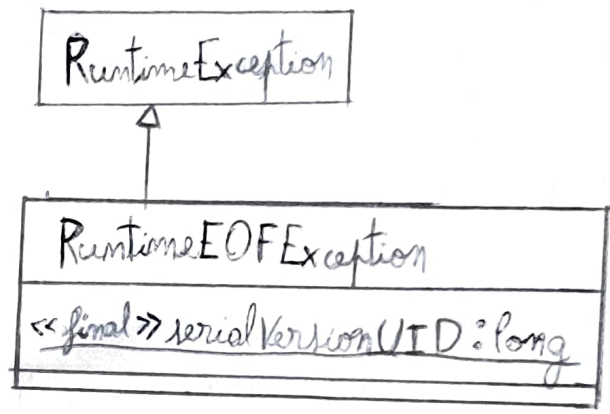 RuntimeException
RuntimeEOFException
<<final>> serialVersionUID : long